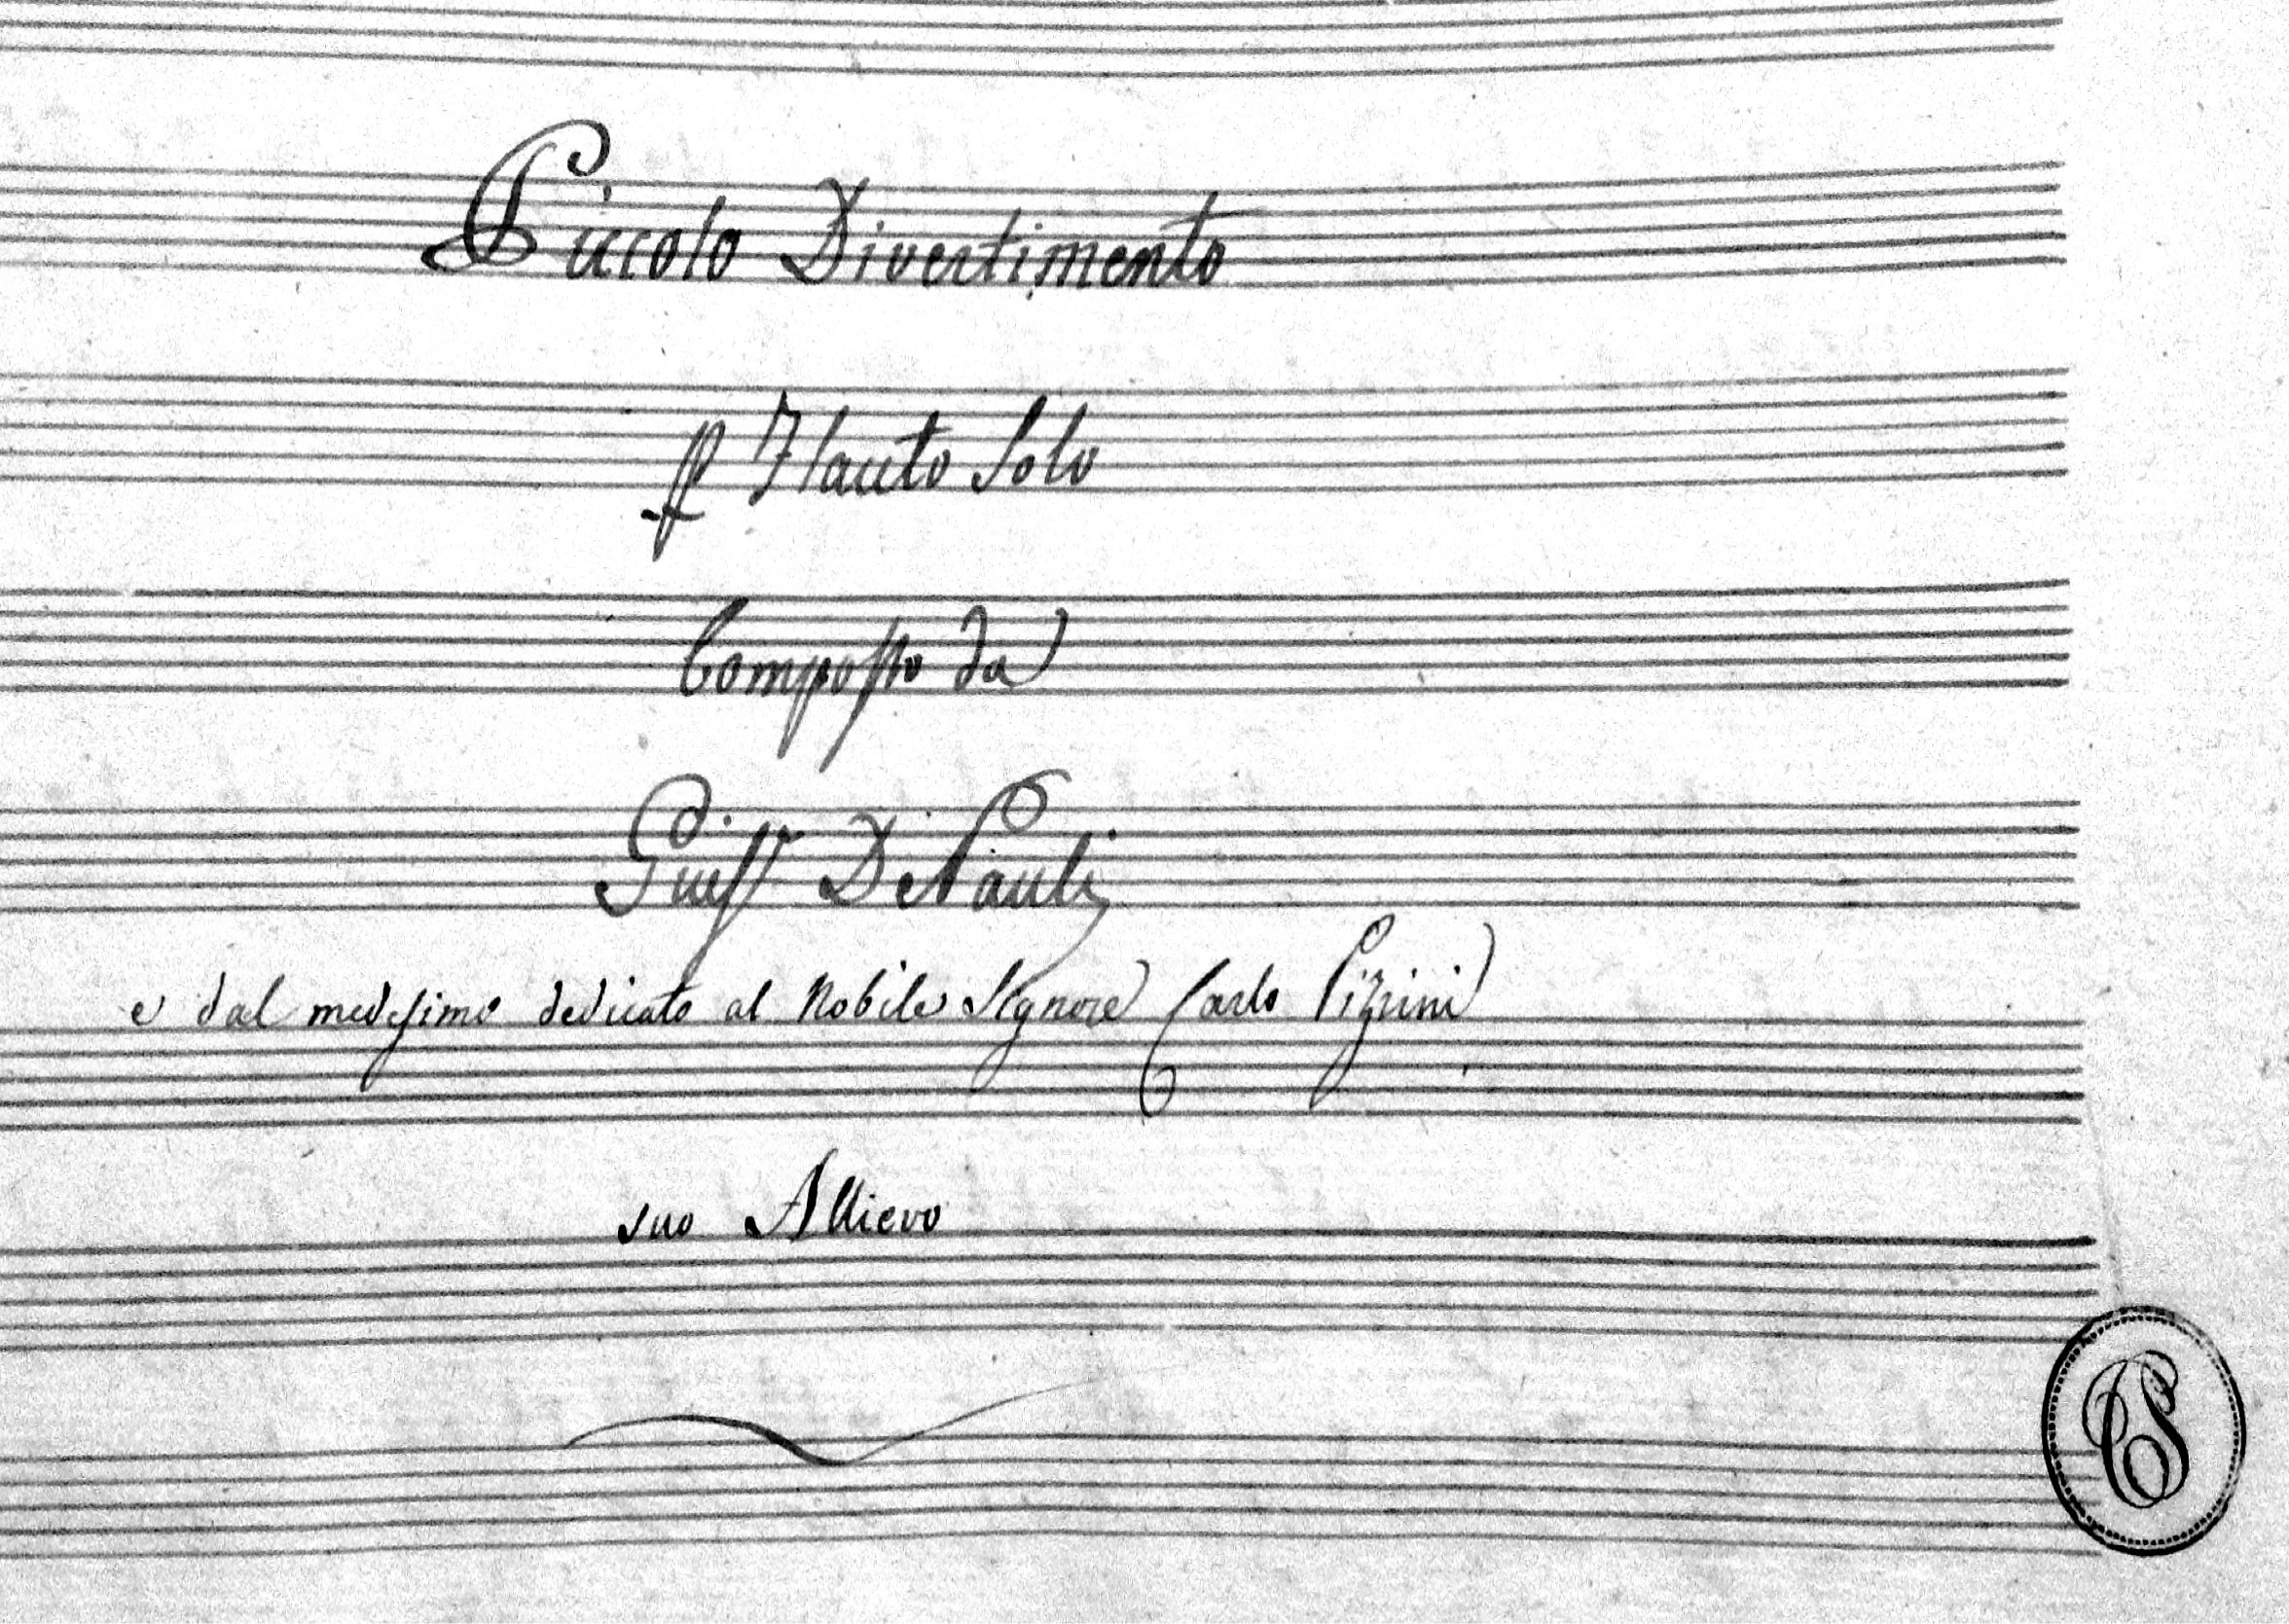 Piccolo Divertimento
p Flauto Solo
Composto da
Guisᵉ DePauli
e dal medesimo dedicato al Nobile Signore Carlo Pizzini
suo Allievo
CP